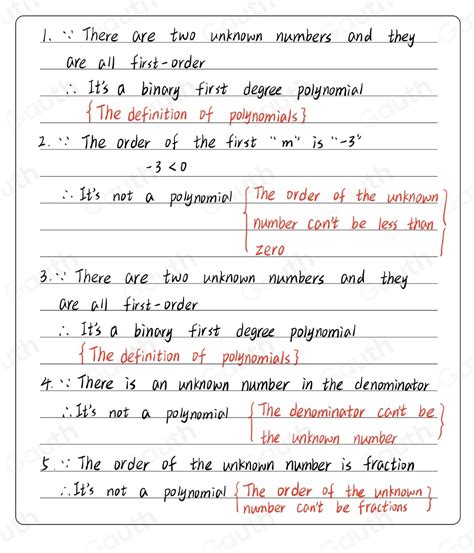 1. ∵ There are two unknown numbers and they
are all first-order
∴ It's a binary first degree polynomial
{The definition of polynomials}
2. ∵ The order of the first "m" is "-3"
-3 < 0
∴ It's not a polynomial {The order of the unknown
number can't be less than
zero}
3. ∵ There are two unknown numbers and they
are all first-order
∴ It's a binary first degree polynomial
{The definition of polynomials}
4. ∵ There is an unknown number in the denominator
∴ It's not a polynomial {The denominator can't be
the unknown number}
5. ∵ The order of the unknown number is fraction
∴ It's not a polynomial {The order of the unknown
number can't be fractions}
Gauth